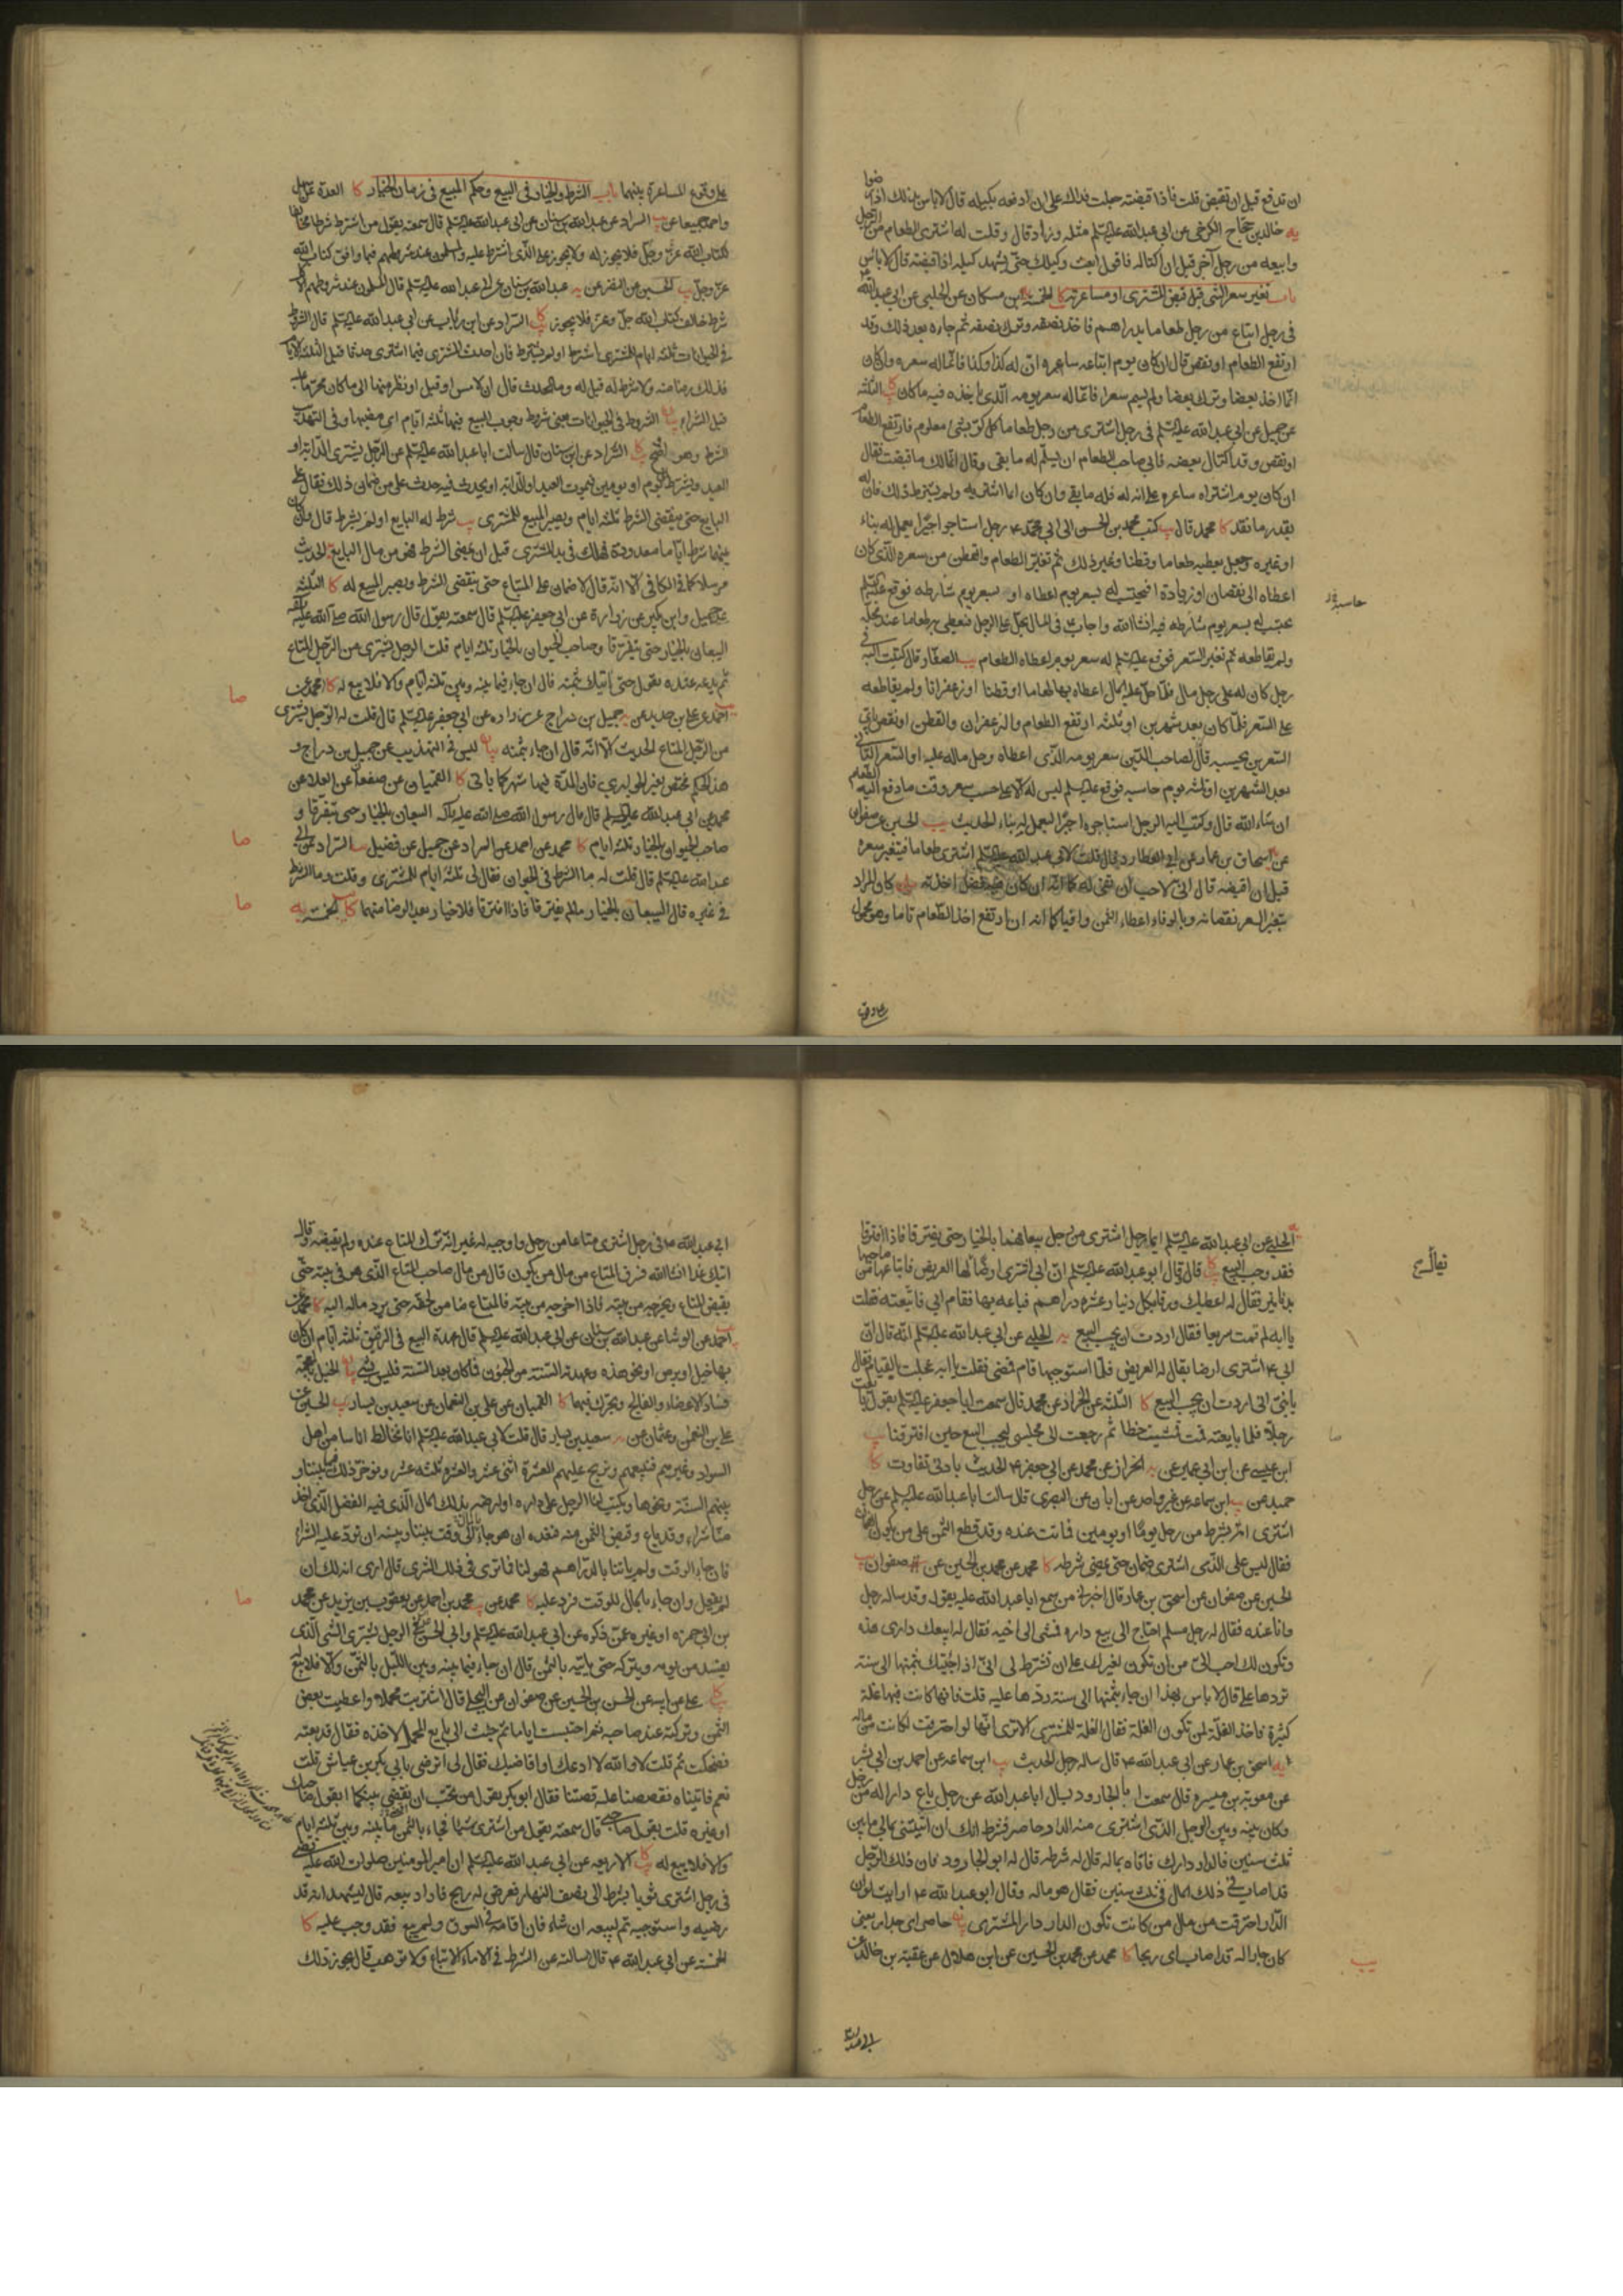 ان تدفع قبل ان تقبض قلت فاذا قبضته جعلت فداك على ان ادفعه بكيله قال لا باس بذلك اذا رضوا
يه خالد بن حجاج الكرخي عن ابي عبد الله عليه السلم مثله وزاد قال وقلت له اشترى الطعام من الرجل
وابيعه من رجل آخر قبل ان اكتاله فاقول ابعث وكيلك حتى يشهد كيله اذا قبضته قال لا باس
باب تغير سعر الشى قبل قبض المشترى او مساعرته كا الخمسة ابن مسكان عن الحلبي عن ابي عبد الله
فى رجل ابتاع من رجل طعاما بدراهم فاخذ نصفه وترك نصفه ثم جاءه بعد ذلك وقد
ارتفع الطعام او نقص قال ان كان يوم ابتاعه ساعره ان له كذا وكذا فانما له سعره وان كان
انما اخذ بعضا وترك بعضا ولم يسم سعرا فانما له سعر يومه الذى ياخذه فيه ما كان كا الثلثة
عن جميل عن ابي عبد الله عليه السلم فى رجل اشترى من رجل طعاما كل كر بشئ معلوم فارتفع الطعام
او نقص وقد اكتال بعضه فابى صاحب الطعام ان يسلم له ما بقى وقال انما لك ما قبضت فقال
ان كان يوم اشتراه ساعره على انه له فله ما بقى وان كان انما اشتراه ولم يشترط ذلك فان له
بقدر ما نقد كا محمد قال يب كتب محمد بن الحسن الى ابي محمد ع رجل استاجر اجيرا يعمل له بناء
او غيره وجعل يعطيه طعاما وقطنا وغير ذلك ثم تغير الطعام والقطن من سعره الذى كان
اعطاه الى نقصان او زيادة ايحتسب له بسعر يوم اعطاه او بسعر يوم شارطه فوقع عليه السلم
يحتسب له بسعر يوم شارطه فيه انشا الله واجاب فى المال يحل على الرجل فيعطى به طعاما عند محله
ولم يقاطعه ثم تغير السعر فوقع عليه السلم له سعر يوم اعطاه الطعام يب الصفار قال كتبت اليه فى
رجل كان له على رجل مال فلما حل عليه المال اعطاه بها طعاما او قطنا او زعفرانا ولم يقاطعه
على السعر فلما كان بعد شهرين او ثلثه ارتفع الطعام والزعفران والقطن او نقص باى
السعرين يحسبه قال لصاحب الدين سعر يومه الذى اعطاه وحل ماله عليه او السعر الثاني
بعد الشهرين او ثلثه يوم حاسبه فوقع عليه السلم ليس له الا على حسب سعر وقت ما دفع اليه الطعام
ان شاء الله قال وكتب اليه الرجل استاجر اجيرا ليعمل له بناء الحديث يب الحسين عن صفوان
عن اسحاق بن عمار عن ابي العطارد قال قلت لابي عبد الله عليه السلم اشترى طعاما فيتغير سعره
قبل ان اقبضه قال انى لاحب ان تفي له كما انه ان كان فيه فضل اخذته بيان كان المراد
بتغير السعر نقصانه وبالوفاء اعطاء الثمن وافيا كما انه ان ارتفع اخذ الطعام تاما وهو محمول
على وقوع المساعرة بينهما باب الشرط والخيار فى البيع وحكم المبيع فى زمان الخيار كا العدة عن سهل
واحمد جميعا عن يب السراد عن عبد الله بن سنان عن ابى عبد الله عليه السلم قال سمعته يقول من اشترط شرطا مخالفا
لكتاب الله عز وجل فلا يجوز له ولا يجوز على الذى اشترط عليه والمسلمون عند شروطهم فيما وافق كتاب الله
عز وجل يب الحسين عن النضر عن يه عبد الله بن سنان عن ابى عبد الله عليه السلم قال المسلمون عند شروطهم الا
شرط خالف كتاب الله جل وعز فلا يجوز كا السراد عن ابن رئاب عن ابى عبد الله عليه السلم قال الشرط
فى الحيوانات ثلثه ايام للمشترى اشترط او لم يشترط فان احدث المشترى فيما اشترى حدثا قبل الثلثه الايام
فذلك رضا منه ولا شرط له قيل له وما الحدث قال ان لامس او قبل او نظر منها الى ما كان محرما عليه
قبل الشراء بيان الشروط فى الحيوانات يعنى شروط وجوب البيع فيها ثلثه ايام اى مضيها وفى التهذيب
الشرط وهو اوضح كا السراد عن ابن سنان قال سالت ابا عبد الله عليه السلم عن الرجل يشترى الدابه او
العبد ويشترط الى يوم او يومين فيموت العبد او الدابه او يحدث فيه حدث على من ضمان ذلك فقال على
البايع حتى ينقضى الشرط ثلثه ايام ويصير المبيع للمشترى يب شرط له البايع او لم يشترط قال وان كان
بينهما شرط اياما معدودة فهلك فى يد المشترى قبل ان يمضى الشرط فهو من مال البايع الحديث
مرسلا كما فى الكافى الا انه قال لا ضمان على المبتاع حتى ينقضى الشرط ويصير المبيع له كا الثلثه
عن جميل وابن بكير عن زرارة عن ابى جعفر عليه السلم قال سمعته يقول قال رسول الله صلى الله عليه واله
البيعان بالخيار حتى يتفرقا وصاحب الحيوان بالخيار ثلثه ايام قلت الرجل يشترى من الرجل المتاع
ثم يدعه عنده يقول حتى اتيك بثمنه قال ان جاء فيما بينه وبين ثلثه ايام والا فلا بيع له كا محمد عن
احمد عن على بن حديد عن يه جميل بن دراج عن زراره عن ابى جعفر عليه السلم قال قلت له الرجل يشترى
من الرجل المتاع الحديث الا انه قال ان جاء بثمنه بيان ليس فى التهذيب عن جميل بن دراج و
هذا الحكم مختص بغير الجوارى فان المدة فيها شهر كما ياتى كا القميان عن صفوان عن العلا عن
محمد عن ابى عبد الله عليه السلم قال قال رسول الله صلى الله عليه واله البيعان بالخيار حتى يتفرقا و
صاحب الحيوان بالخيار ثلثه ايام كا محمد عن احمد عن السراد عن جميل عن فضيل يب السراد عن
عبد الله عليه السلم قال قلت له ما الشرط فى الحيوان فقال لى ثلثه ايام للمشترى وقلت وما الشرط
فى غيره قال البيعان بالخيار ما لم يفترقا فاذا افترقا فلا خيار بعد الرضا منهما كا الخمسه يه
صا
صا
صا
الحلبي عن ابى عبد الله عليه السلم ايما رجل اشترى من رجل بيعا فهما بالخيار حتى يفترقا فاذا افترقا
فقد وجب البيع كا قال قال ابو عبد الله عليه السلم ان ابى اشترى ارضا يقال لها العريض فابتاعها من صاحبها
بدنانير فقال له اعطيك ورقا بكل دينار عشره دراهم فباعه بها فقام ابى فاتبعته فقلت
يا ابه لم قمت سريعا فقال اردت ان يجب البيع يه الحلبي عن ابى عبد الله عليه السلم انه قال ان
ابى ع اشترى ارضا يقال له العريض فلما استوجبها قام فمضى فقلت يا ابه عجلت القيام فقال
يا بنى انى اردت ان يجب البيع كا الثلثة عن الخراز عن محمد قال سمعت ابا جعفر عليه السلم يقول بايعت
رجلا فلما بايعته قمت فمشيت خطا ثم رجعت الى مجلسى ليجب البيع حين افترقنا يب
ابن عيسى عن ابن ابى عمير عن يه الخراز عن محمد عن ابى جعفر ع الحديث بادنى تفاوت كا
حميد عن يب ابن سماعه عن غير واحد عن ابان عن البصرى قال سالت ابا عبد الله عليه السلم عن رجل
اشترى امة بشرط من رجل يوما او يومين فماتت عنده وقد قطع الثمن على من يكون الضمان
فقال ليس على الذى اشترى ضمان حتى يمضى شرطه كا محمد عن محمد بن الحسين عن صفوان يب
الحسين عن صفوان عن اسحق بن عمار قال اخبرنى من سمع ابا عبد الله عليه يقول وقد ساله رجل
وانا عنده فقال له رجل مسلم احتاج الى بيع داره فمشى الى اخيه فقال له ابيعك دارى هذه
وتكون لك احب الى من ان تكون لغيرك على ان تشترط لى انى اذا جئتك بثمنها الى سنة
تردها على قال لا باس بهذا ان جاء بثمنها الى سنة ردها عليه قلت فانها كانت فيها غلة
كثيرة فاخذ الغلة لمن تكون الغلة فقال الغلة للمشترى الا ترى انها لو احترقت لكانت من ماله
يه اسحق بن عمار عن ابى عبد الله ع قال ساله رجل الحديث يب ابن سماعه عن احمد بن ابى بشر
عن معويه بن ميسره قال سمعت ابا الجارود يسال ابا عبد الله عن رجل باع دارا له من رجل
وكان بينه وبين الرجل الذى اشترى منه الدار حاصر فشرط انك ان اتيتنى بمالى ما بين
ثلث سنين فالدار دارك فاتاه بماله قال له شرطه قال له ابو الجارود فان ذلك الرجل
قد اصاب فى ذلك المال فى ثلث سنين فقال هو ماله وقال ابو عبد الله ع ارايت لو ان
الدار احترقت من مال من كانت تكون الدار دار المشترى بيان حاصر اى جدار يعنى
كان جارا له قد اصاب اى ربحا كا محمد عن محمد بن الحسين عن ابن هلال عن عقبه بن خالد عن
يب
ابى عبد الله ع فى رجل اشترى متاعا من رجل واوجبه له غير انه ترك المتاع عنده ولم يقبضه وقال
اتيك غدا انشا الله فسرق المتاع من مال من يكون قال من مال صاحب المتاع الذى هو فى بيته حتى
يقبض المتاع ويخرجه من بيته فاذا اخرجه من بيته فالمبتاع ضامن لحقه حتى يرد ماله اليه كا محمد عن
احمد عن الوشا عن عبد الله بن سنان عن ابى عبد الله عليه السلم قال عهدة البيع فى الرقيق ثلثه ايام ان كان
بها خبل او برص او نحو هذه وعهدته السنة من الجنون فما كان بعد السنة فليس بشئ بيان الخبل
فساد الاعضاء والفالج ويحرك فيهما كا القميان عن على بن النعمان عن سعيد بن يسار يب الحسين عن
على بن النعمن وعثمان عن يه سعيد بن يسار قال قلت لابى عبد الله عليه السلم انا نخالط اناسا من اهل
السواد وغيرهم فنبيعهم ونربح عليهم العشرة اثنى عشر والعشره ثلثه عشر ونوخر ذلك فيما بيننا و
بينهم السنة ونحوها ويكتب لنا الرجل على داره او ارضه بذلك المال الذى فيه الفضل الذى اخذ
منا شراء وقد باع وقبض الثمن منه فنعده ان هو جاء بالمال الى وقت بيننا وبينه ان نرد عليه الشراء
فان جاء الوقت ولم ياتنا بالدراهم فهو لنا فما ترى فى ذلك الشرى قال ارى انه لك ان
لم يفعل وان جاء بالمال للوقت فرد عليه كا محمد عن يب محمد بن احمد عن يعقوب بن يزيد عن محمد
بن ابى حمزه او غيره عمن ذكره عن ابى عبد الله عليه السلم وابى الحسن ع فى الرجل يشترى الشى الذى
يفسد من يومه ويتركه حتى ياتيه بالثمن قال ان جاء فيما بينه وبين الليل بالثمن والا فلا بيع
كا على عن ابيه عن الحسن بن الحسين عن صفوان عن البجلى قال اشتريت محملا واعطيت بعض
الثمن وتركته عند صاحبه ثم احتبست اياما ثم جئت الى بايع المحمل لاخذه فقال قد بعته
فضحكت ثم قلت لا والله لا ادعك او اقاضيك فقال لى اترضى بابى بكر بن عياش قلت
نعم فاتيناه فقصصنا عليه قصتنا فقال ابو بكر بقول من تحب ان نقضى بينكما ابقول صاحبك
او غيره قلت بقول صاحبى قال سمعته يقول من اشترى شيئا فجاء بالثمن ما بينه وبين ثلثه ايام
والا فلا بيع له يب كا الاربعه عن ابى عبد الله عليه السلم ان امير المومنين صلوات الله عليه قضى
فى رجل اشترى ثوبا بشرط الى نصف النهار فعرض له ربح فاراد بيعه قال ليشهد انه قد
رضيه واستوجبه ثم ليبعه ان شاء فان اقامه فى السوق ولم يبع فقد وجب عليه كا
الخمسه عن ابى عبد الله ع قال سالته عن الشرط فى الاماء الا تباع ولا توهب قال يجوز ذلك
صا